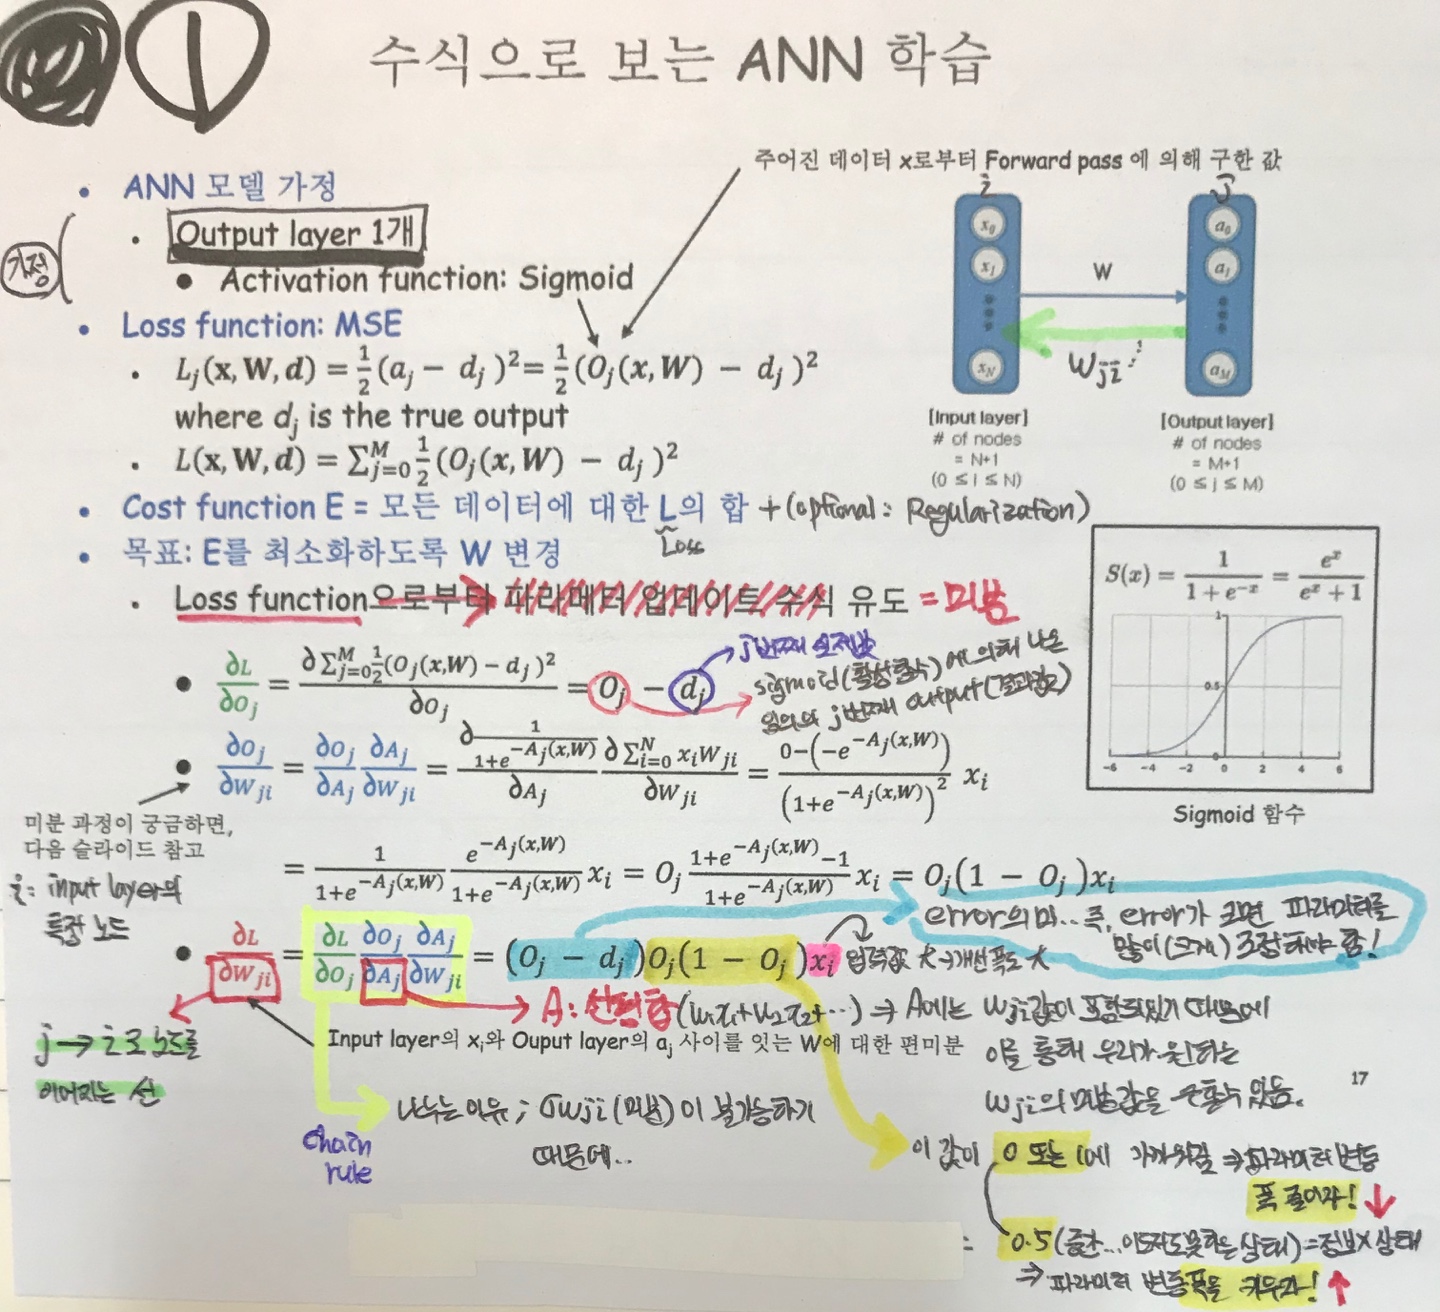 ①
수식으로 보는 ANN 학습
주어진 데이터 x로부터 Forward pass 에 의해 구한 값
• ANN 모델 가정
가정
• Output layer 1개
● Activation function: Sigmoid
• Loss function: MSE
• Lⱼ(x,W,d) = 1/2(aⱼ − dⱼ)² = 1/2(Oⱼ(x,W) − dⱼ)²
where dⱼ is the true output
• L(x,W,d) = ∑ᴹⱼ₌₀ 1/2(Oⱼ(x,W) − dⱼ)²
• Cost function E = 모든 데이터에 대한 L의 합 + (optional: Regularization)
Loss
• 목표: E를 최소화하도록 W 변경
• Loss function으로부터 파라메터 업데이트 수식 유도 = 미분
i
j
x₀
xⱼ
x_N
W
Wji
a₀
aⱼ
a_M
[Input layer]
# of nodes
= N+1
(0 ≤ i ≤ N)
[Output layer]
# of nodes
= M+1
(0 ≤ j ≤ M)
S(x) = 1/(1 + e⁻ˣ) = eˣ/(eˣ + 1)
1
0.5
0
−6 −4 −2 0 2 4 6
Sigmoid 함수
● ∂L/∂Oⱼ = ∂∑ᴹⱼ₌₀ 1/2(Oⱼ(x,W) − dⱼ)²/∂Oⱼ = Oⱼ − dⱼ
j번째 실제값
sigmoid(활성함수)에 의해 나온
임의의 j번째 output(결과값)
● ∂Oⱼ/∂Wji = ∂Oⱼ/∂Aⱼ ∂Aⱼ/∂Wji = ∂(1/(1+e^(−Aⱼ(x,W))))/∂Aⱼ ∂∑ᴺᵢ₌₀ xᵢWji/∂Wji = (0−(−e^(−Aⱼ(x,W))))/(1+e^(−Aⱼ(x,W)))² xᵢ
미분 과정이 궁금하면,
다음 슬라이드 참고
= 1/(1+e^(−Aⱼ(x,W))) e^(−Aⱼ(x,W))/(1+e^(−Aⱼ(x,W))) xᵢ = Oⱼ (1+e^(−Aⱼ(x,W))−1)/(1+e^(−Aⱼ(x,W))) xᵢ = Oⱼ(1 − Oⱼ)xᵢ
input layer의
특정 노드
error의미... 즉, error가 크면 파라미터를
많이(크게) 조정해야 함!
● ∂L/∂Wji = ∂L/∂Oⱼ ∂Oⱼ/∂Aⱼ ∂Aⱼ/∂Wji = (Oⱼ − dⱼ)Oⱼ(1 − Oⱼ)xᵢ
입력값 大→개선폭도 大
A: 선형합(w₁x₁+w₂x₂+…) ⇒ A에는 Wji값이 포함되있기 때문에
이를 통해 우리가 원하는
Wji의 미분값을 구할수 있음.
Input layer의 xᵢ와 Ouput layer의 aⱼ 사이를 잇는 W에 대한 편미분
j → i로 노드를
이어지는 선
17
나누는 이유; ∂Wji(미분)이 불가능하기
때문에..
Chain
rule
이 값이 0 또는 1에 가까워짐 ⇒ 파라미터 변동
폭 줄이자! ↓
0.5(중간...이도저도 못하는 상태)=정보X 상태
⇒ 파라미터 변동폭을 키우자! ↑